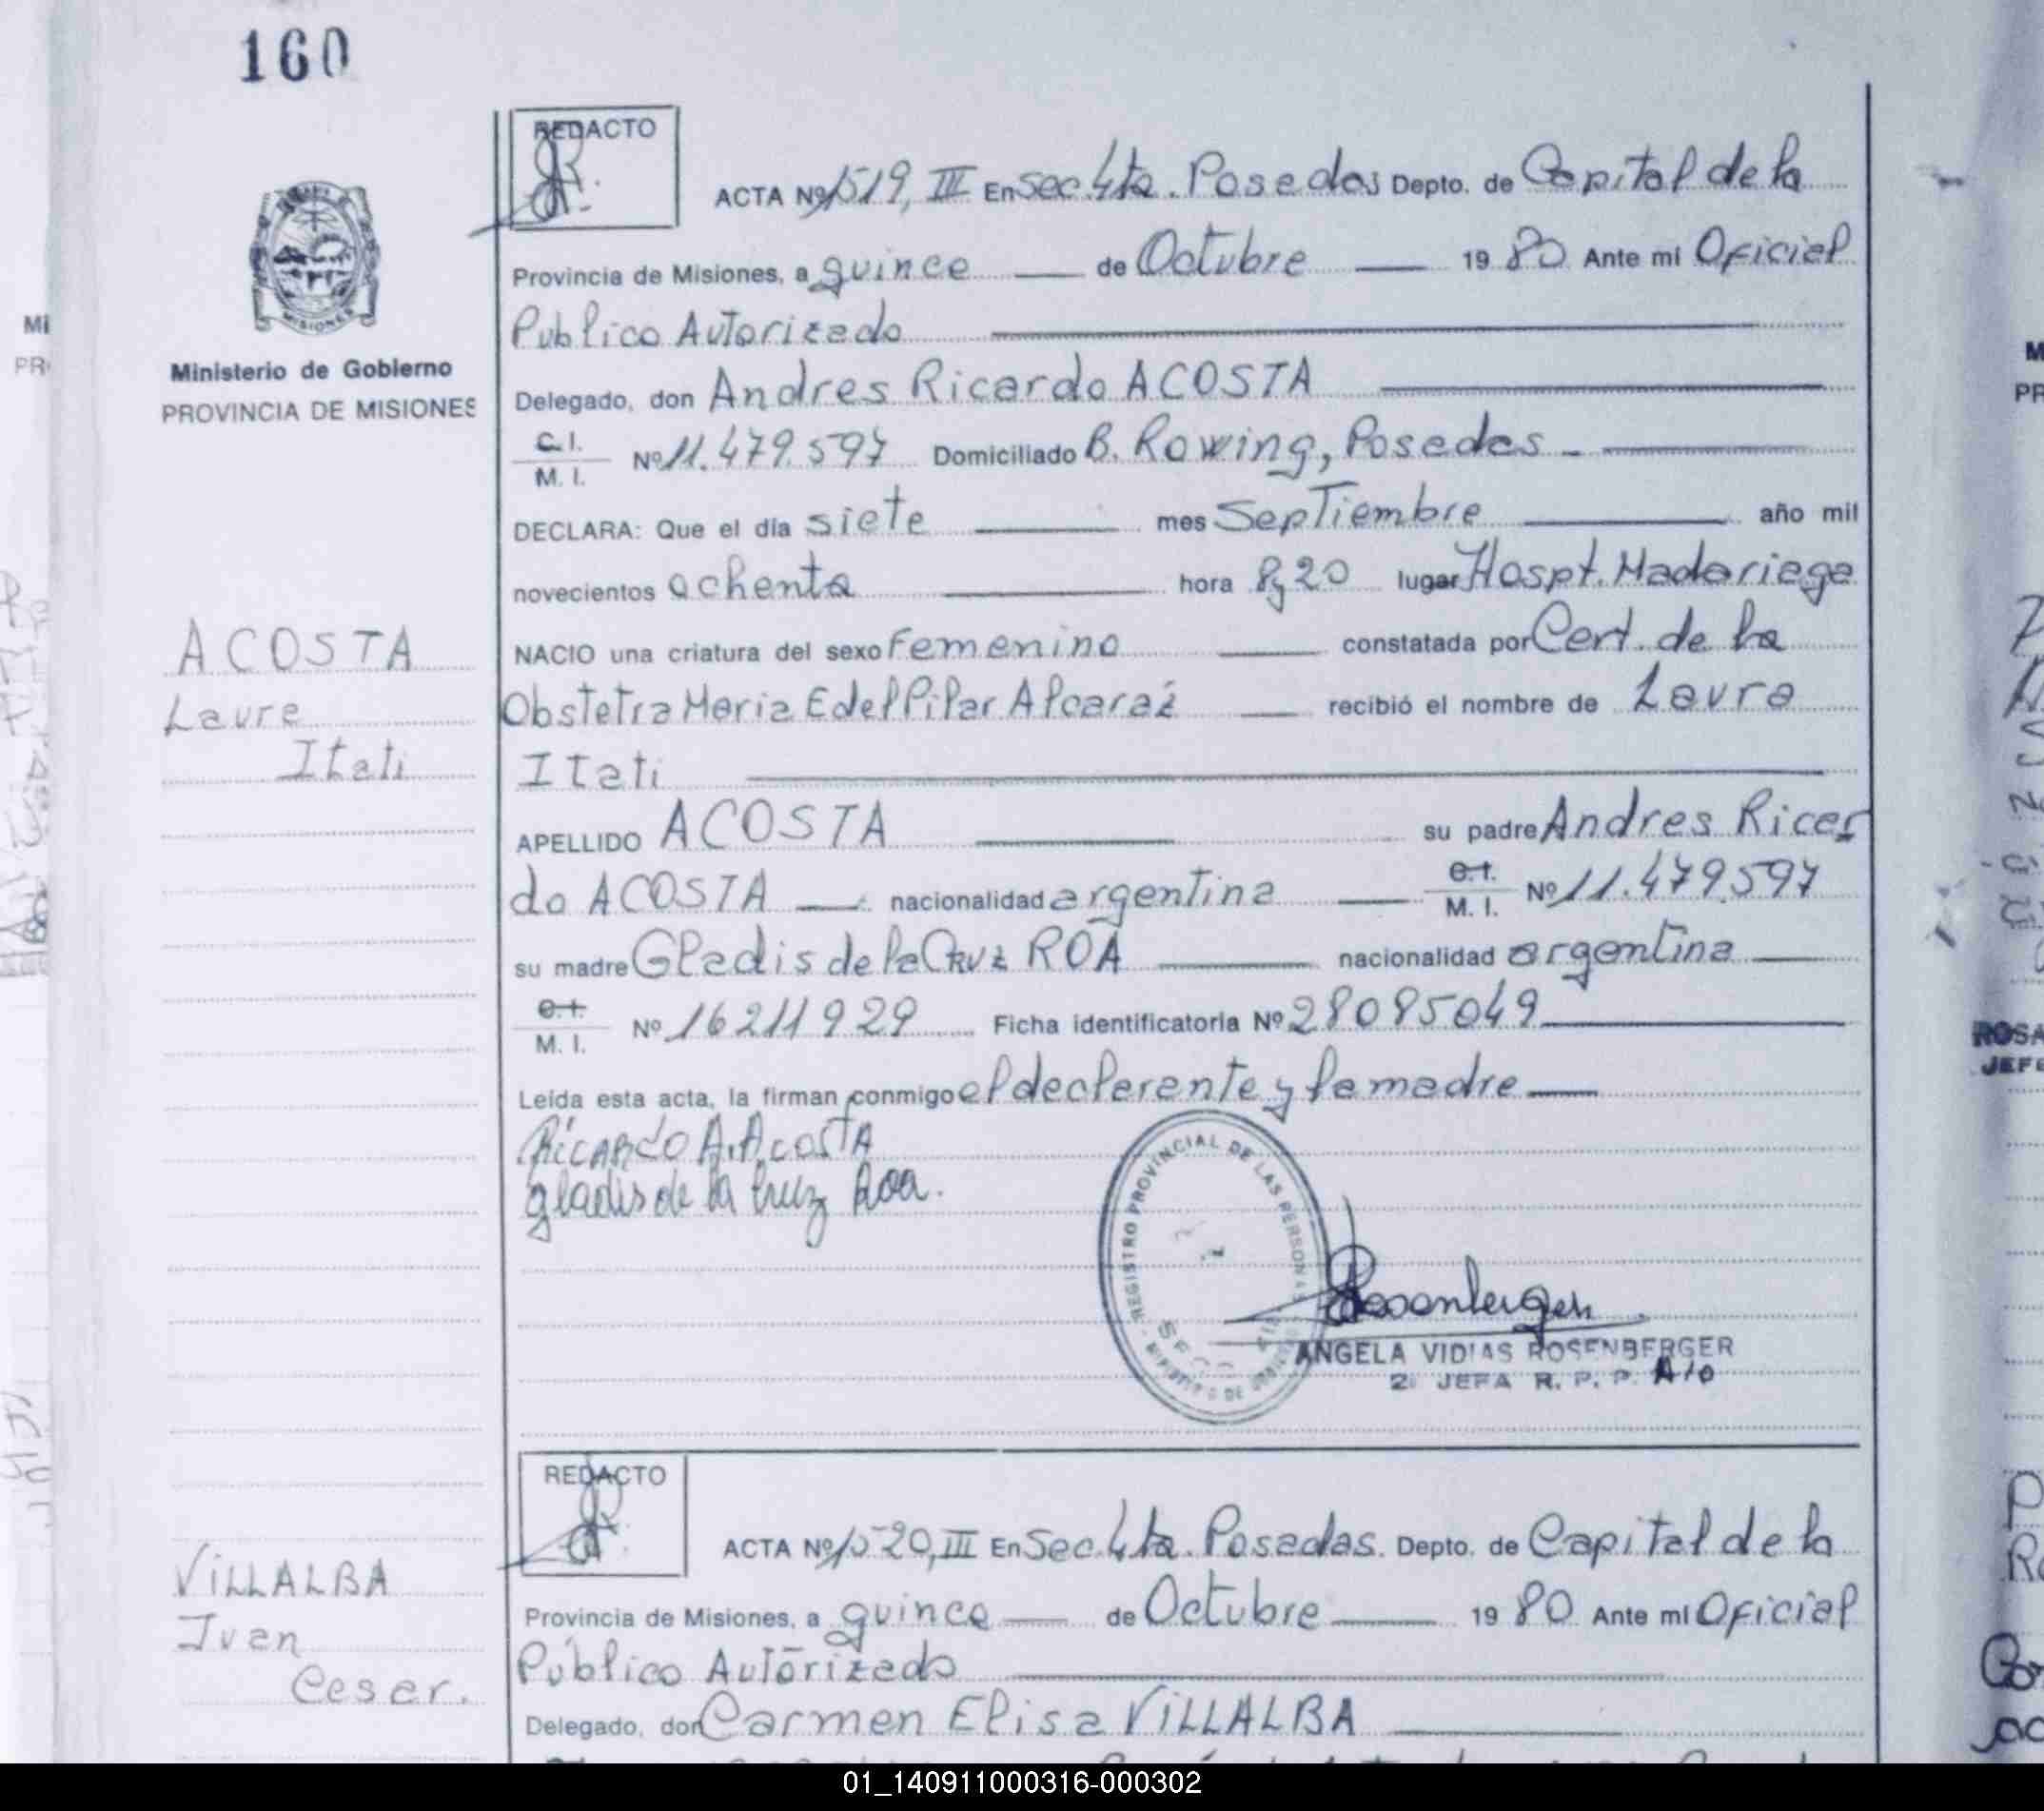 160
REDACTO
ACTA Nº 1519, III En Sec. 4ta. Posadas Depto. de Capital de la
Provincia de Misiones, a quince de Octubre 1980 Ante mi Oficial
Publico Autorizado
Ministerio de Gobierno
PROVINCIA DE MISIONES
Delegado, don Andres Ricardo ACOSTA
C.I.
M. I. Nº 11.479.597 Domiciliado B. Rowing, Posadas -
DECLARA: Que el día siete mes Septiembre año mil
novecientos ochenta hora 8,20 lugar Hospt. Madariaga
ACOSTA
Laura
Itati
NACIO una criatura del sexo Femenino constatada por Cert. de la
Obstetra Maria E del Pilar Alcaraz recibió el nombre de Laura
Itati
APELLIDO ACOSTA su padre Andres Ricar
do ACOSTA nacionalidad argentina C.I. M. I. Nº 11.479.597
su madre Gladis de la Cruz ROA nacionalidad argentina
C.I.
M. I. Nº 16211929 Ficha identificatoria Nº 28085049
Leída esta acta, la firman conmigo el declarante y la madre
Ricardo A. Acosta
gladis de la Cruz Roa.
REGISTRO PROVINCIAL DE LAS PERSONAS
Rosenberger
ANGELA VIDIAS ROSENBERGER
2ª JEFA R. P. P. A/C
REDACTO
ACTA Nº 1520, III En Sec. 4ta. Posadas. Depto. de Capital de la
Provincia de Misiones, a quince de Octubre 1980 Ante mi Oficial
Público Autorizado
Delegado, don Carmen Elisa VILLALBA
VILLALBA
Ivan
Cesar.
01_140911000316-000302